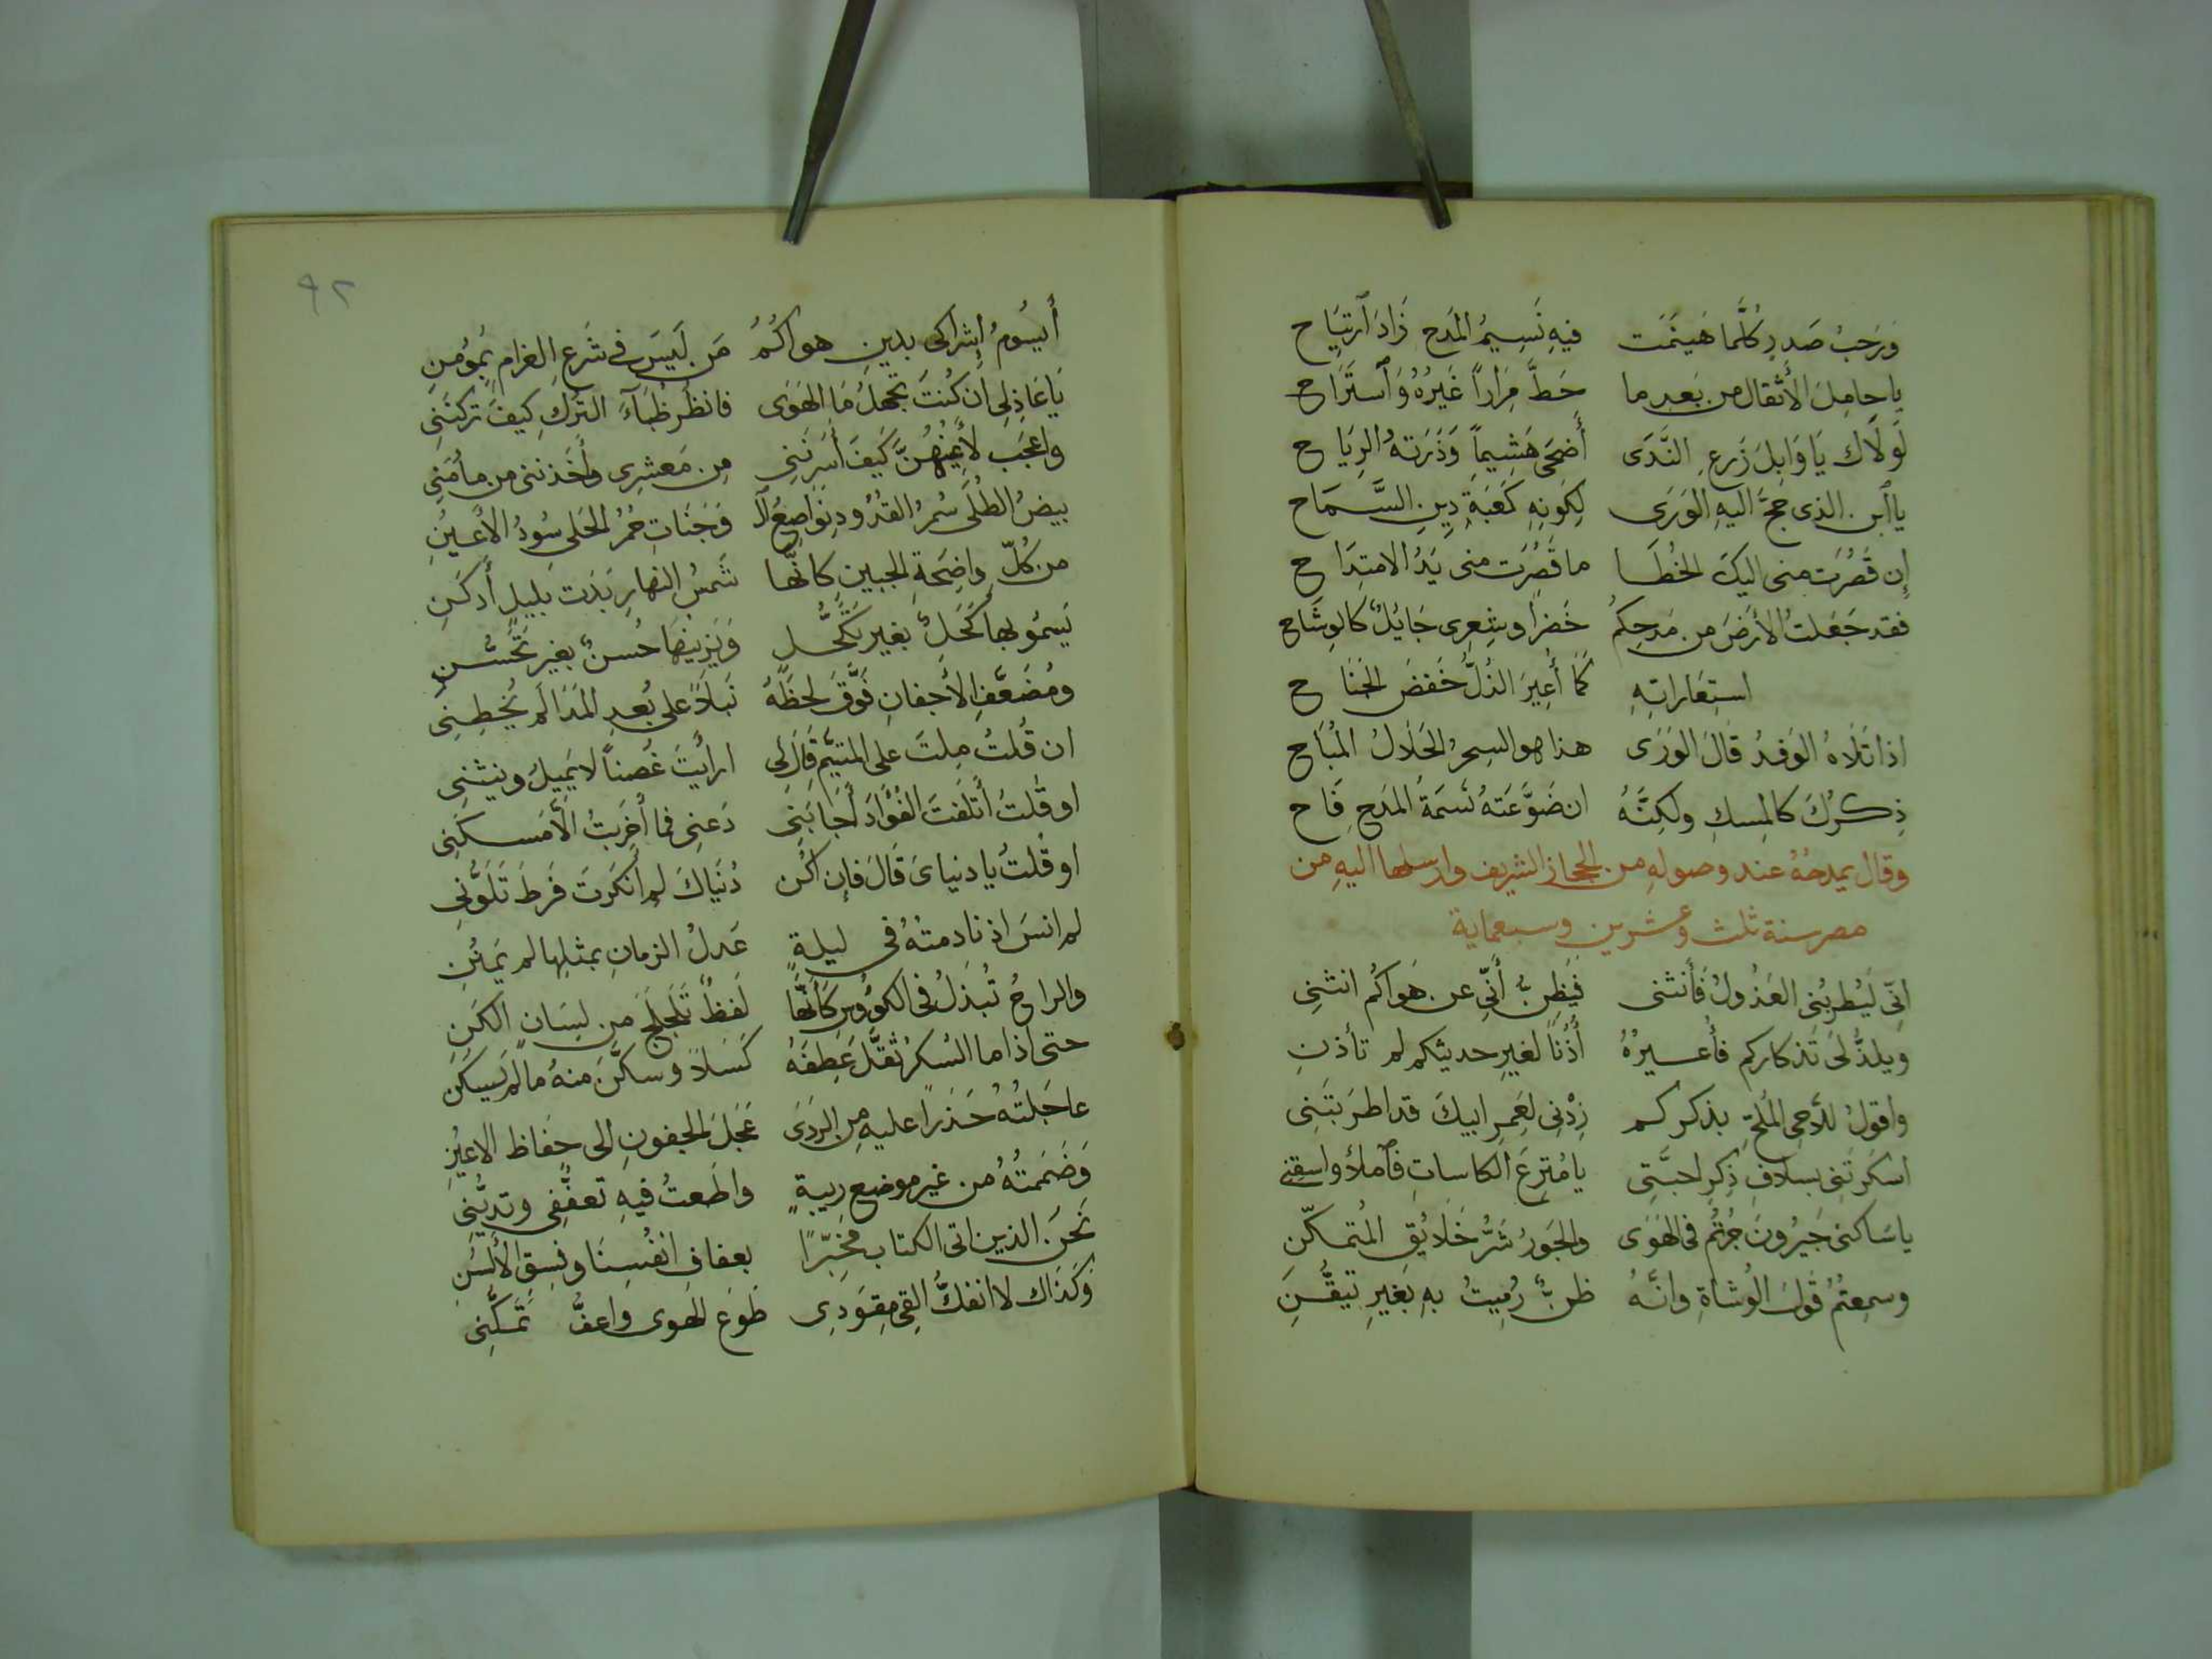 وَرَحبُ صَدرٍ كُلَّما هَينَمَت فيهِ نَسِيمُ المَدح زَادَ ٱرتِيَاح
يا حامِلَ الأَثقال من بَعدِ ما حَطَّ مِرَاراً غَيرُهُ وَٱستَرَاح
لَولَاك يَا وَابِلَ زَرعِ النَّدَى أَضحَى هَشِيماً وَذَرَتهُ الرِيَاح
يا ٱبن الذى حجَّ اليهِ الوَرَى لِكَونِهِ كَعبَةِ دِينِ السَّمَاح
إن قَصُرَت منى اليكَ الخُطَا ما قَصُرَت منى يَدُ الامتِدَاح
فقد جَعَلتُ الأرضَ من مَدحِكمُ خَضرًا وشِعرِى جَايُلٌ كالوِشَاح
استِعَاراتِهِ كَمَا أُعِيرَ الذُلُّ خَفضَ الجَنَاح
اذا تَلَاهُ الوَفدُ قالَ الوَرَى هذا هو السِحرُ الحَلَالُ المُبَاح
ذِكرُكَ كالمِسكِ ولكِنَّهُ ان ضَوَّعَتهُ نَسَمَةُ المَدح فَاح
وقال يمدحُهُ عند وصولهِ من الحجاز الشريف وارسلها اليهِ من
مصر سنة ثلث وعشرين وسبعماية
انّى لَيُطرِبُنى العَذُولُ فَأَنثنى فَيَظِنُّ أَنّى عن هَواكُم انثنِى
ويلذُّ لى تَذكاركم فأُعيرُهُ أُذُنًا لغيرِ حديثكم لم تأذنِ
واقولُ للَّاحى المُلحِّ بذكركم زِدْنِى لعَمرِ ابيكَ قد اطرَبتَنِى
اسكَرتَنِى بسلافِ ذِكرِ احبَّتِى يا مُترِعَ الكاساتِ فٱملأ واسقِنِى
يا سَاكنى جَيرُونَ جُرتُم فى الهَوَى والجَورُ شَرُّ خَلَايُقِ المُتمكّنِ
وسمِعتُمُ قَولَ الوُشاةِ وانَّهُ ظنٌّ رُميتُ بهِ بغيرِ تيقُّنِ
٩٢
أَيسُومُ إشراكى بدينِ هواكُمُ مَن لَيسَ فى شَرعِ الغرامِ بمُؤمنِ
يَا عَاذِلِى ان كُنتَ تجهلُ مَا الهَوَى فانظر ظُبَآءَ التُركِ كيفَ تركننِى
واعجَب لأَعيُنِهُنَّ كَيفَ أَسَرنَنِى مِن مَعشرِى وأَخَذننى من مأمَنِى
بيضُ الطُلَى سُمرُ القُدُودِ نَوَاصِعُ ٱل وَجَنَاتِ حُمرُ الحَلى سُودُ الأَعيُنِ
من كُلِّ واضِحَةِ الجبينِ كانَّها شَمسُ النهارِ بَدَت بليلٍ أَدكَنِ
يَسمُو بها كَحَلٌ بغيرِ تكَحُّلٍ وَيَزِينهَا حُسنٌ بغيرِ تَحَسُّنِ
ومُضَعَّفِ الأَجفانِ فَوَّقَ لحظَهُ نَبلاً على بُعدِ المَدَا لَم يُخطِنِى
ان قُلتُ مِلتَ على المتيَّم قَالَ لى ارايُتَ غُصناً لا يَمِيلُ وينثنِى
او قُلتُ أَتلَفتَ الفُؤَادَ أَجَابَنِى دَعنِى فما أَخرَبتُ الَّا مَسكنِى
او قُلتُ يا دنياىَ قَالَ فإن اكُن دُنيَاكَ لم انكَرتَ فَرطَ تَلَوُّنِى
لم انسَ اذ نادمتُهُ فى ليلةٍ عَدلُ الزمانِ بمثلِها لم يَمنُنِ
والراحُ تُبذَلُ فى الكؤُوسِ كَأنَّها لَفظٌ تَلَجلَجَ من لِسَانِ الكَنِ
حتى اذا ما السُكرُ ثقَّلَ عَطِفَهُ كَسَلاً وسكَّنَ منهُ ما لم يَسكنِ
عاجَلتُهُ حَذَرًا عليهِ مِن الرَدَى عَجَلَ الجفونِ الى حِفاظ الاعيُنِ
وَضَمَمتُهُ من غيرِ موضعِ رِيبةٍ واطَعتُ فيهِ تعفُّفِى وتديُّنِى
نَحنُ الذين اتى الكتاب مخبِّرًا بعفافِ انفُسِنَا وفِسقِ الأَلسُنِ
وَكَذَاكَ لا انفكُّ القِى مِقوَدِى طَوعَ الهَوى واعفُّ تَمكُّنِى